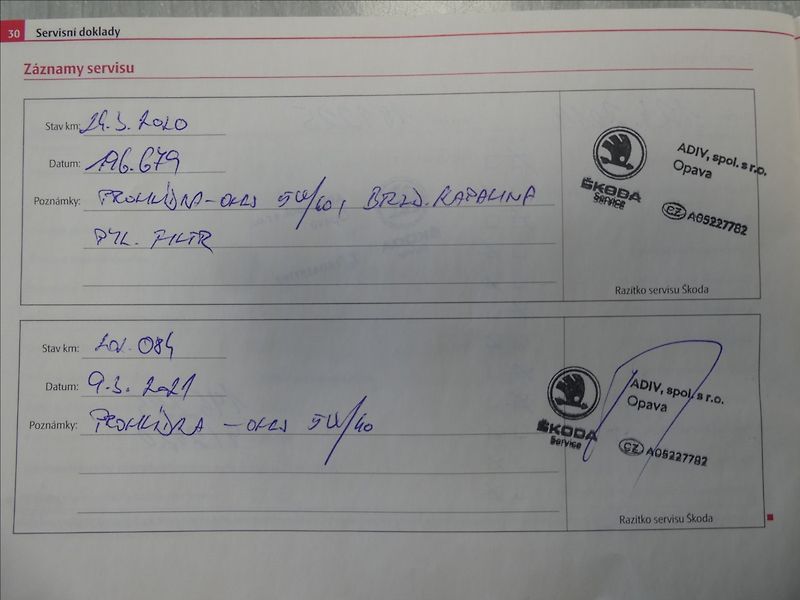 30 Servisní doklady
Záznamy servisu
Stav km: 24.3.2020
Datum: 196.679
Poznámky: PROHLÍDKA - OLEJ 5W/40, BRZD. KAPALINA
PYL. FILTR
ŠKODA
Service
ADIV, spol. s r.o.
Opava
CZ A05227782
Razítko servisu Škoda
Stav km: 202.084
Datum: 9.3.2021
Poznámky: PROHLÍDKA - OLEJ 5W/40
ŠKODA
Service
ADIV, spol. s r.o.
Opava
CZ A05227782
Razítko servisu Škoda